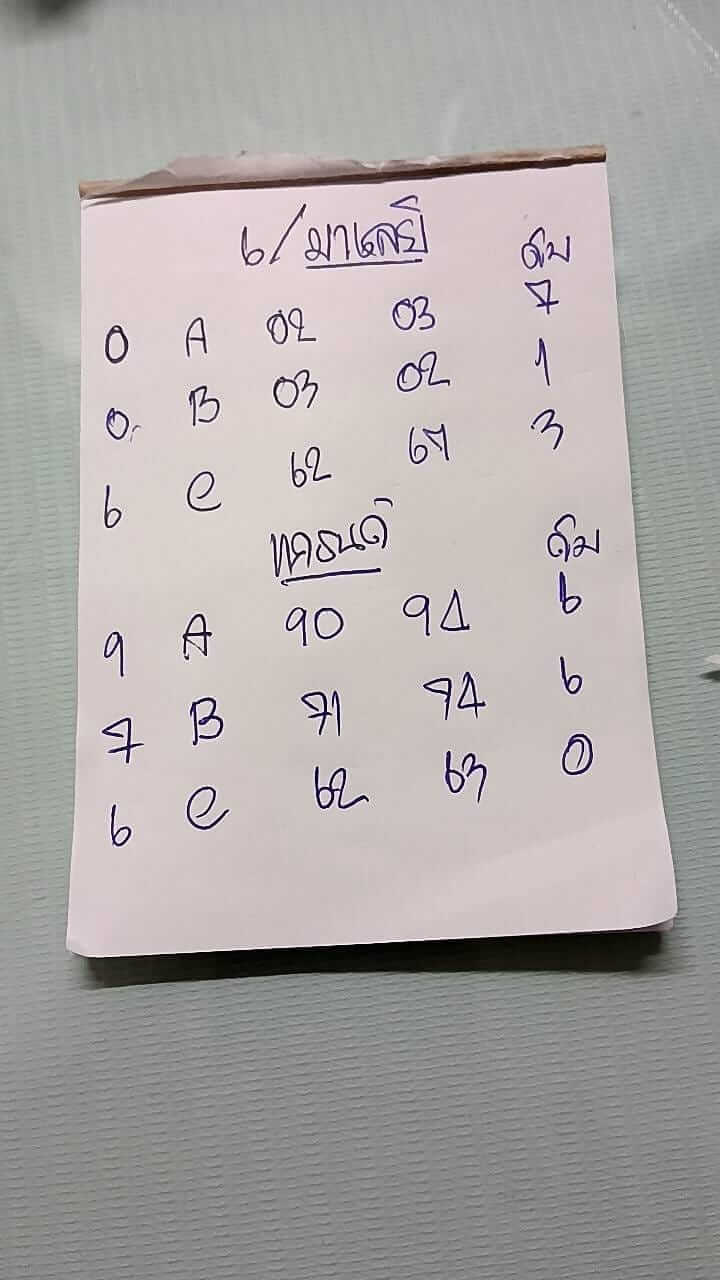 6/มาเลย์
ดับ
0 A 02 03 7
0 B 03 02 1
6 C 62 67 3
ดับ
9 A 90 94 6
7 B 71 74 6
6 C 62 63 0